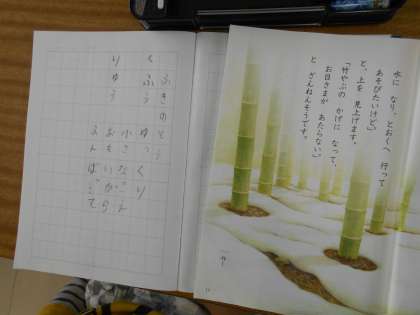 水に なり、とおくへ 行って
あそびたいけど」
と、上を 見上げます。
「竹やぶの かげに なって、
お日さまが あたらない」
と ざんねんそうです。
ふきのとう
くふう ゆっくり
小さな
りゆう